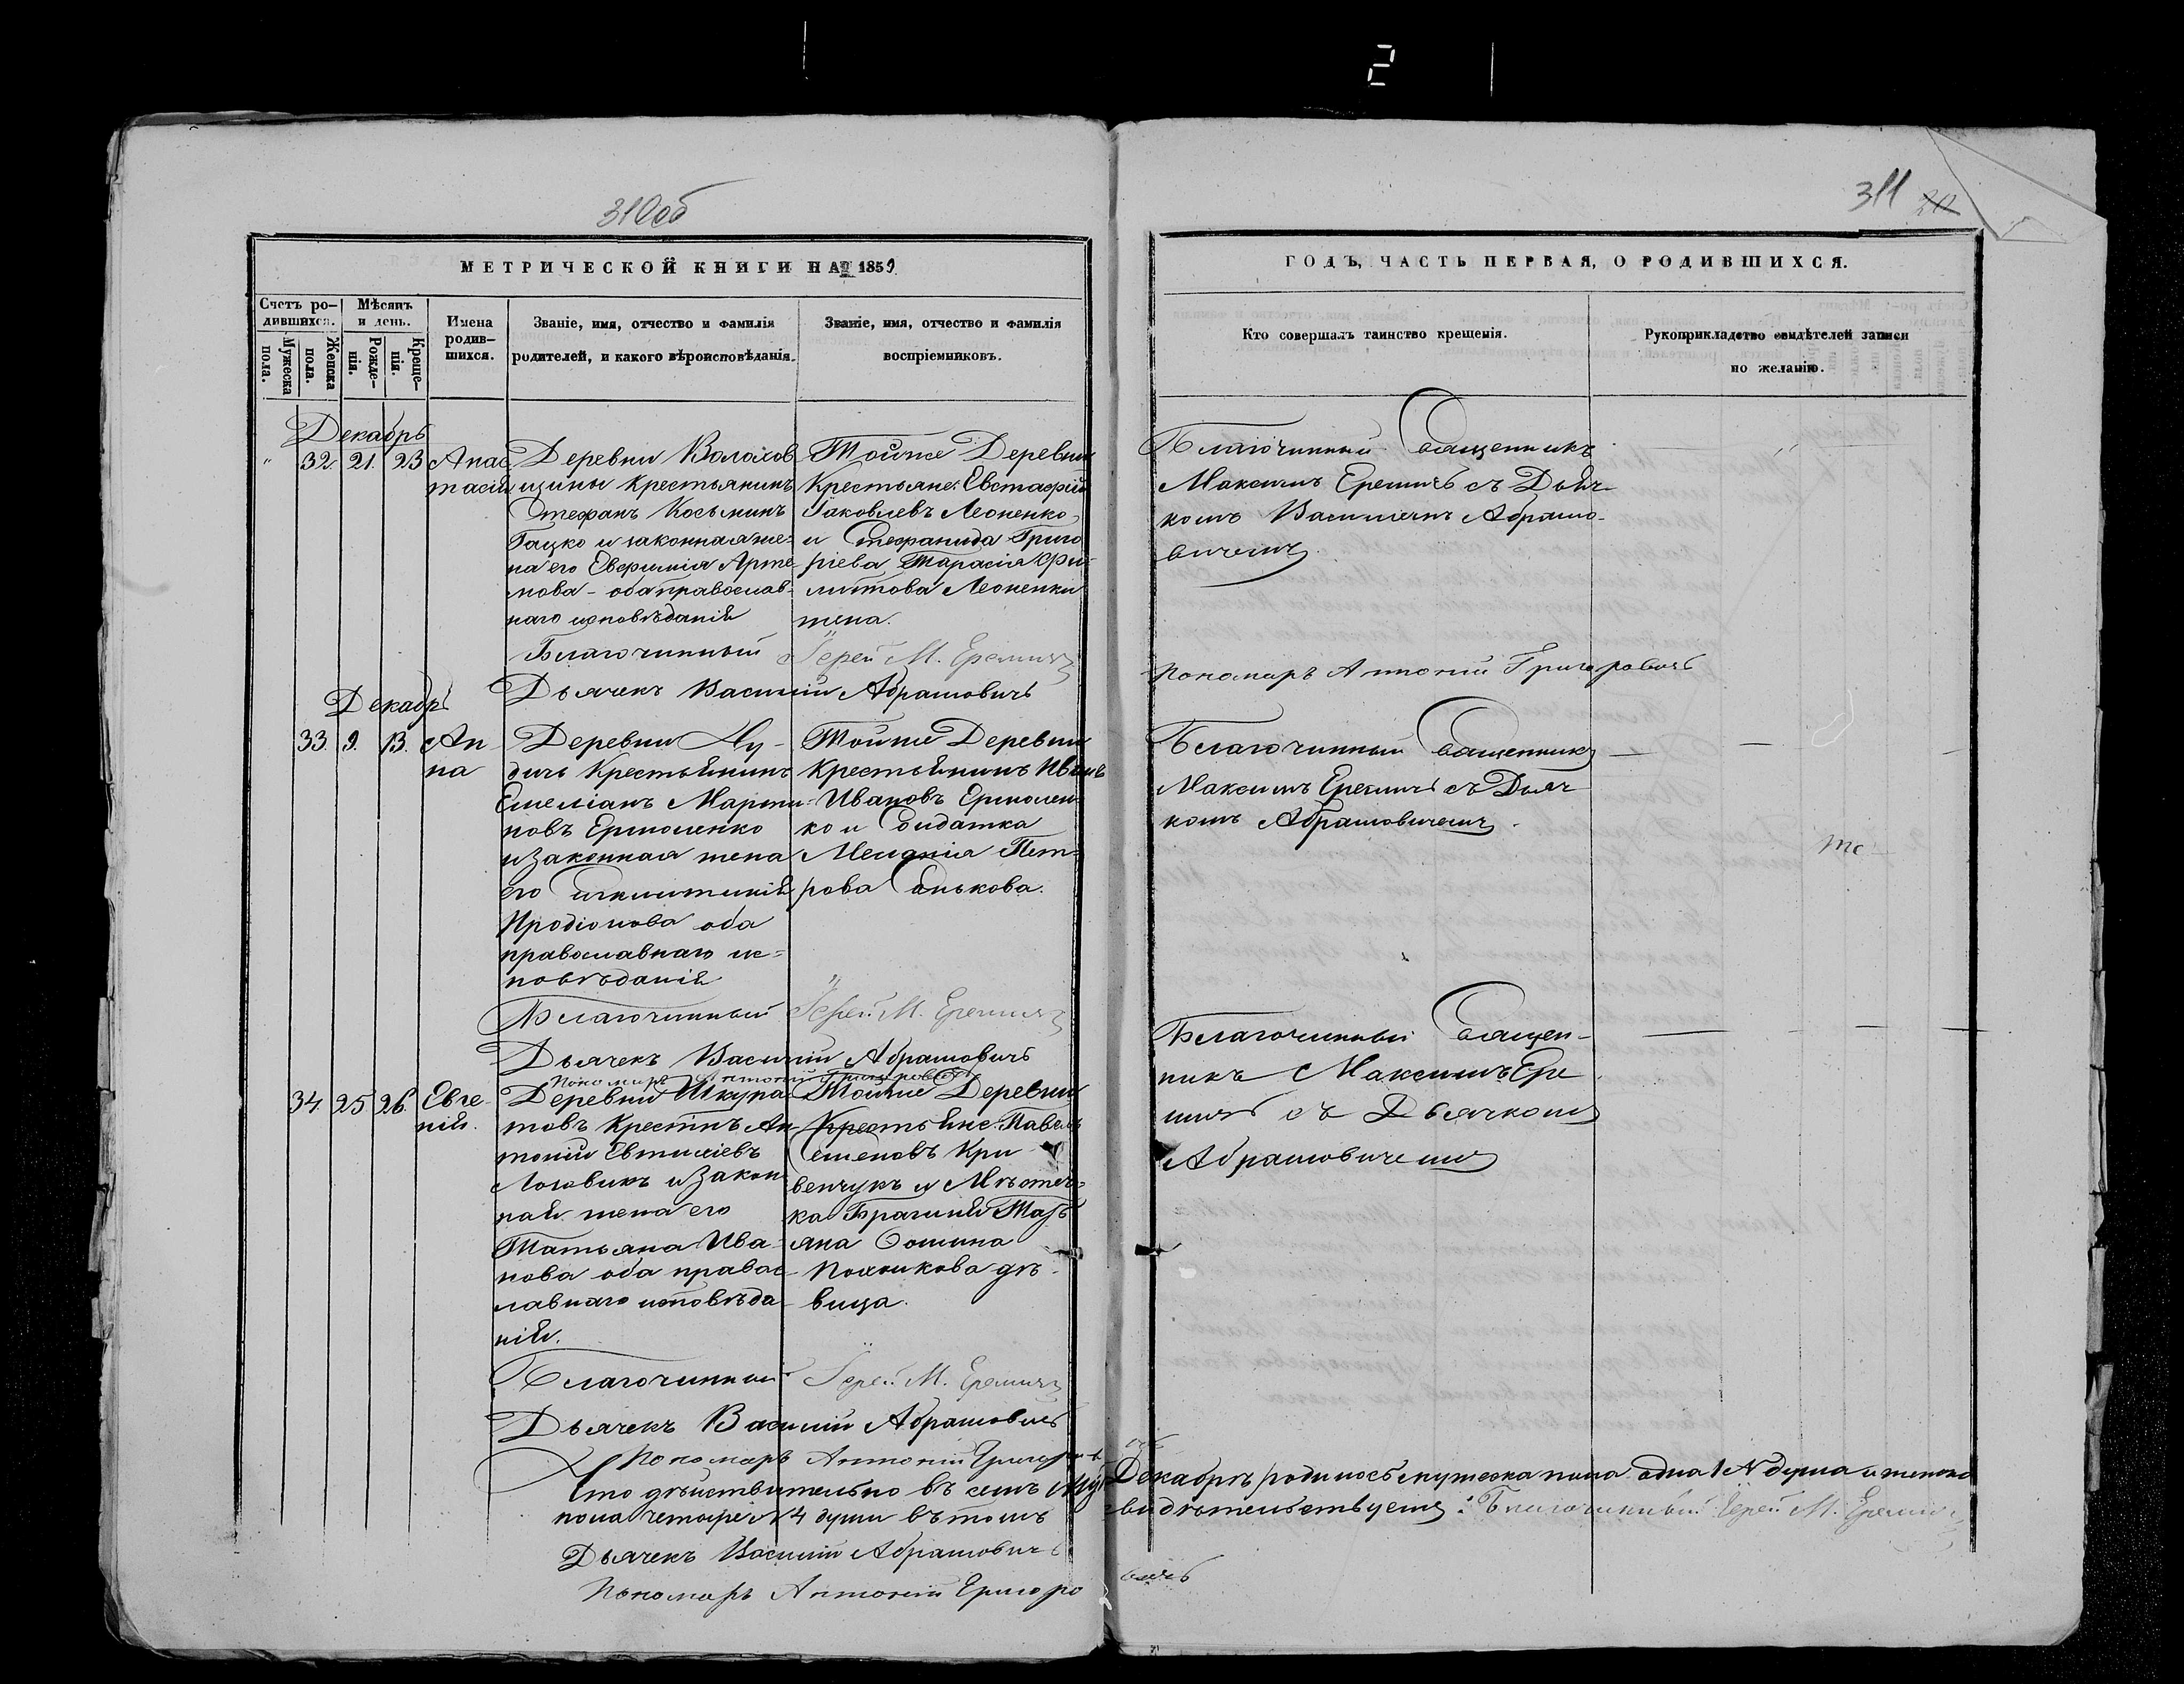 2
310об
311
МЕТРИЧЕСКОЙ КНИГИ НА 1859
Счетъ ро-
дившихся.
Мужеска
пола.
Женска
пола.
Мѣсяцъ
и день.
Рожде-
нія.
Креще-
нія.
Имена
родив-
шихся.
Званіе, имя, отчество и фамилія
родителей, и какого вѣроисповѣданія.
Званіе, имя, отчество и фамилія
воспріемниковъ.
Декабрь
32. 21. 23
Анас
тасія
Деревни Волохов
щины крестьянинъ
Стефанъ Косьминъ
Гацко и законная же-
на его Евфимія Арте-
мова - оба православ-
наго исповѣданія
Тойже Деревни
Крестьяне: Евстафій
Іаковлевъ Леоненко
и Стефанида Григо
ріева Тарасія Фи-
липова Леоненки
жена.
Благочинный Іерей М. Еремичъ
Дьячекъ Василій Абрамовичъ
Декабрь
33. 9. 13.
Ан-
на
Деревни
дичь Крестьянинъ
Емеліанъ Марти-
новъ Ермоленко
и законная жена
его
Иродіонова оба
православнаго ис=
повѣданія
Тойже Деревни
Крестьянинъ Иванъ
Ивановъ Ермолен
ко и Солдатка
Меланія Пет=
рова Санькова.
Благочинный Іерей М. Еремичъ
Дьячекъ Василій Абрамовичъ
Пономарь Антоній Григоровичъ
34. 25 26.
Евге-
нія.
Деревни Шкура
товъ Крестінъ Ан
тоній Евтихіевъ
Логовикъ и закон
ная жена его
Татьяна Ива-
нова оба правос-
лавнаго исповѣда-
нія.
Тойже Деревни
Крестьяне: Павелъ
Семеновъ Кри
венчукъ и Мѣстеч=
ка Брагиня Тать
яна Фомина
дѣ-
вица.
Благочинный Іерей М. Еремичъ
Дьячекъ Василій Абрамовичъ
Пономарь Антоній Григоров
Что дѣйствительно въ семъ
пола четыре № 4 души въ томъ
Дьячекъ Василій Абрамовичъ
Пономарь Антоній Григоро
ГОДЪ, ЧАСТЬ ПЕРВАЯ, О РОДИВШИХСЯ.
Кто совершалъ таинство крещенія.
Рукоприкладство свидѣтелей записи
по желанію.
Благочинный Священникъ
Максимъ Еремичъ съ Дьяч-
комъ Василіемъ Абрамо-
вичемъ
Пономарь Антоній Григоровичъ
Благочинный Священникъ
Максимъ Еремичъ съ Дьяч
комъ Абрамовичемъ.
Благочинный Священ-
никъ Максимъ Ере
мичъ съ Дьячкомъ
Абрамовичемъ
Декабрѣ родилось мужеска пола одна 1 № душа и женска
свидѣтельствуемъ: Благочинный Іерей М. Еремичъ
вичъ